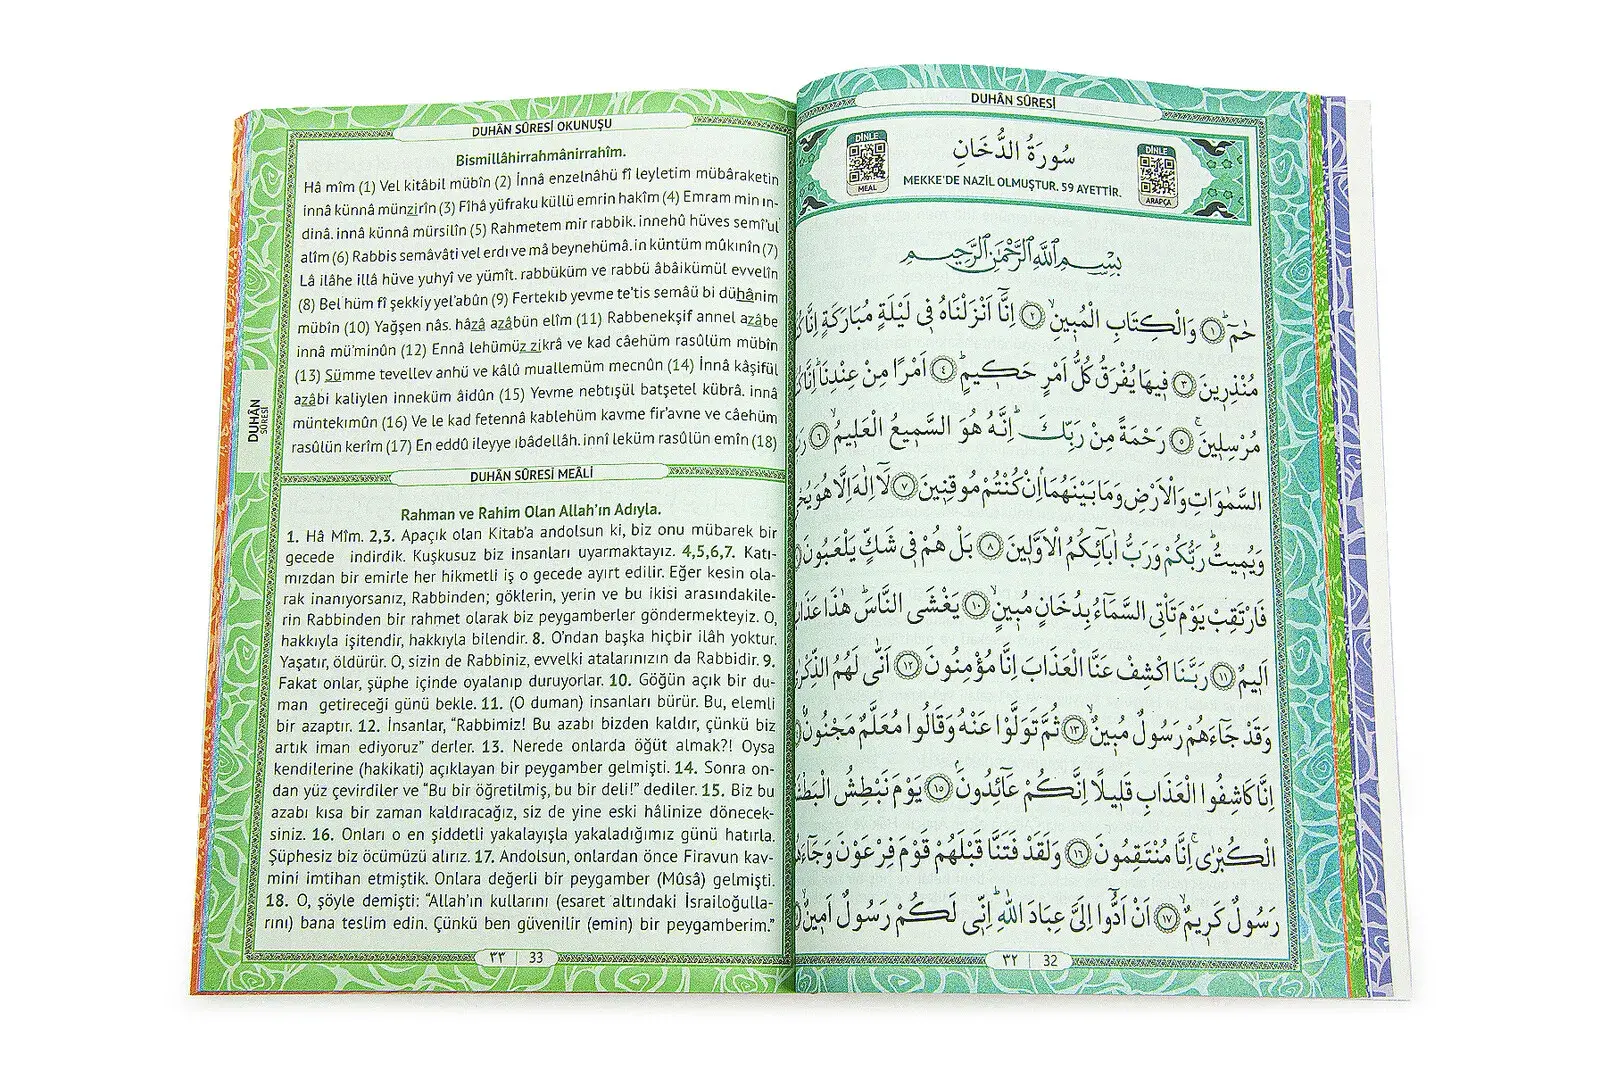 DUHÂN SÛRESİ
DİNLE
MEAL
سُورَةُ الدُّخَانِ
MEKKE'DE NAZİL OLMUŞTUR. 59 AYETTİR.
DİNLE
ARAPÇA
بِسْمِ اللّٰهِ الرَّحْمٰنِ الرَّحِيمِ
حٰمٓ ۙ ﴿١﴾ وَالْكِتَابِ الْمُبٖينِۙ ﴿٢﴾ اِنَّٓا اَنْزَلْنَاهُ فٖى لَيْلَةٍ مُبَارَكَةٍ اِنَّا
مُنْذِرٖينَ ﴿٣﴾ فٖيهَا يُفْرَقُ كُلُّ اَمْرٍ حَكٖيمٍۙ ﴿٤﴾ اَمْرًا مِنْ عِنْدِنَاۜ اِنَّا
مُرْسِلٖينَۚ ﴿٥﴾ رَحْمَةً مِنْ رَبِّكَۜ اِنَّهُ هُوَ السَّمٖيعُ الْعَلٖيمُۙ ﴿٦﴾
السَّمٰوَاتِ وَالْاَرْضِ وَمَا بَيْنَهُمَاۢ اِنْ كُنْتُمْ مُوقِنٖينَ ﴿٧﴾ لَٓا اِلٰهَ اِلَّا هُوَ
وَيُمٖيتُۜ رَبُّكُمْ وَرَبُّ اٰبَٓائِكُمُ الْاَوَّلٖينَ ﴿٨﴾ بَلْ هُمْ فٖى شَكٍّ يَلْعَبُونَ
فَارْتَقِبْ يَوْمَ تَاْتِى السَّمَٓاءُ بِدُخَانٍ مُبٖينٍۙ ﴿١٠﴾ يَغْشَى النَّاسَۜ هٰذَا
اَلٖيمٌ ﴿١١﴾ رَبَّنَا اكْشِفْ عَنَّا الْعَذَابَ اِنَّا مُؤْمِنُونَ ﴿١٢﴾ اَنّٰى لَهُمُ
وَقَدْ جَٓاءَهُمْ رَسُولٌ مُبٖينٌۙ ﴿١٣﴾ ثُمَّ تَوَلَّوْا عَنْهُ وَقَالُوا مُعَلَّمٌ مَجْنُونٌۢ
اِنَّا كَاشِفُوا الْعَذَابِ قَلٖيلًا اِنَّكُمْ عَٓائِدُونَۢ ﴿١٥﴾ يَوْمَ نَبْطِشُ
الْكُبْرٰىۚ اِنَّا مُنْتَقِمُونَ ﴿١٦﴾ وَلَقَدْ فَتَنَّا قَبْلَهُمْ قَوْمَ فِرْعَوْنَ
رَسُولٌ كَرٖيمٌۙ ﴿١٧﴾ اَنْ اَدُّٓوا اِلَىَّ عِبَادَ اللّٰهِۜ اِنّٖى لَكُمْ رَسُولٌ اَمٖينٌۙ
٣٢ | 32
DUHÂN SÛRESİ OKUNUŞU
Bismillâhirrahmânirrahîm.
Hâ mîm (1) Vel kitâbil mübîn (2) İnnâ enzelnâhü fî leyletim mübâraketin
innâ künnâ münzirîn (3) Fîhâ yüfraku küllü emrin hakîm (4) Emram min ın-
dinâ. innâ künnâ mürsilîn (5) Rahmetem mir rabbik. innehû hüves semî'ul
alîm (6) Rabbis semâvâti vel erdı ve mâ beynehümâ. in küntüm mûkınîn (7)
Lâ ilâhe illâ hüve yuhyî ve yümît. rabbüküm ve rabbü âbâikümül evvelîn
(8) Bel hüm fî şekkiy yel'abûn (9) Fertekıb yevme te'tis semâü bi dühânim
mübîn (10) Yağşen nâs. hâzâ azâbün elîm (11) Rabbenekşif annel azâbe
innâ mü'minûn (12) Ennâ lehümüz zikrâ ve kad câehüm rasûlüm mübîn
(13) Sümme tevellev anhü ve kâlû muallemüm mecnûn (14) İnnâ kâşifül
azâbi kaliylen inneküm âidûn (15) Yevme nebtışül batşetel kübrâ. innâ
müntekımûn (16) Ve le kad fetennâ kablehüm kavme fir'avne ve câehüm
rasûlün kerîm (17) En eddû ileyye ıbâdellâh. innî leküm rasûlün emîn (18)
DUHÂN
SÛRESİ
DUHÂN SÛRESİ MEÂLİ
Rahman ve Rahim Olan Allah'ın Adıyla.
1. Hâ Mîm. 2,3. Apaçık olan Kitab'a andolsun ki, biz onu mübarek bir
gecede indirdik. Kuşkusuz biz insanları uyarmaktayız. 4,5,6,7. Katı-
mızdan bir emirle her hikmetli iş o gecede ayırt edilir. Eğer kesin ola-
rak inanıyorsanız, Rabbinden; göklerin, yerin ve bu ikisi arasındakile-
rin Rabbinden bir rahmet olarak biz peygamberler göndermekteyiz. O,
hakkıyla işitendir, hakkıyla bilendir. 8. O'ndan başka hiçbir ilâh yoktur.
Yaşatır, öldürür. O, sizin de Rabbiniz, evvelki atalarınızın da Rabbidir. 9.
Fakat onlar, şüphe içinde oyalanıp duruyorlar. 10. Göğün açık bir du-
man getireceği günü bekle. 11. (O duman) insanları bürür. Bu, elemli
bir azaptır. 12. İnsanlar, "Rabbimiz! Bu azabı bizden kaldır, çünkü biz
artık iman ediyoruz" derler. 13. Nerede onlarda öğüt almak?! Oysa
kendilerine (hakikati) açıklayan bir peygamber gelmişti. 14. Sonra on-
dan yüz çevirdiler ve "Bu bir öğretilmiş, bu bir deli!" dediler. 15. Biz bu
azabı kısa bir zaman kaldıracağız, siz de yine eski hâlinize dönecek-
siniz. 16. Onları o en şiddetli yakalayışla yakaladığımız günü hatırla.
Şüphesiz biz öcümüzü alırız. 17. Andolsun, onlardan önce Firavun kav-
mini imtihan etmiştik. Onlara değerli bir peygamber (Mûsâ) gelmişti.
18. O, şöyle demişti: "Allah'ın kullarını (esaret altındaki İsrailoğulla-
rını) bana teslim edin. Çünkü ben güvenilir (emin) bir peygamberim."
٣٣ | 33